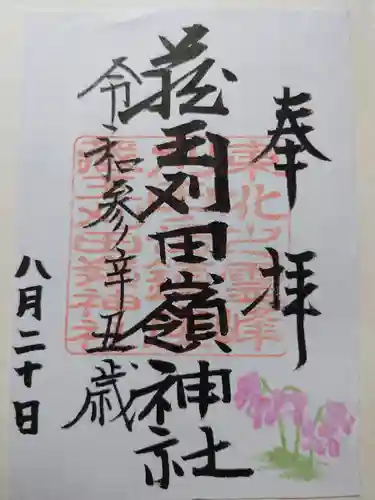 奉拝
蔵王刈田嶺神社
令和参年辛丑歳
八月二十日